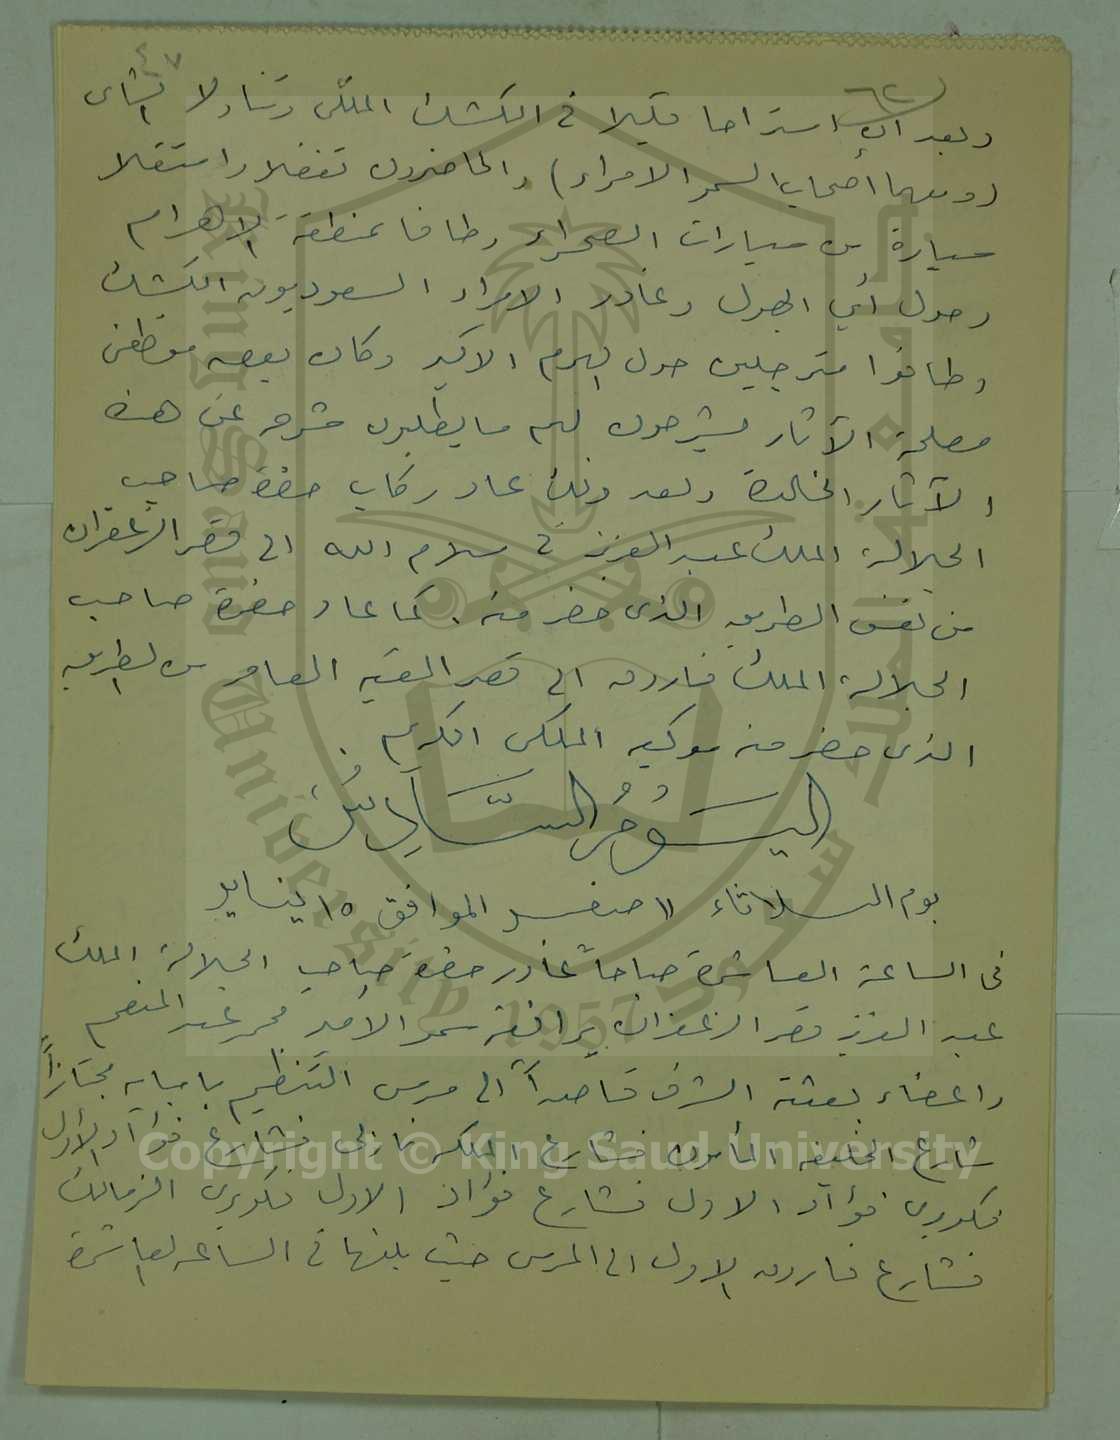 ٤٧
٦٢
وبعد ان استراحا قليلا فى الكشك الملكى وتناولا الشاى
(ومعهما أصحاب السمو الامراء) والحاضرون تفضلا واستقلا
سيارة من سيارات الصحراء وطافا بمنطقة الاهرام
وحول أبي الهول وغادر الامراء السعوديون الكشك
وطافوا مترجلين حول الهرم الاكبر وكان بعض موظفى
مصلحة الآثار يشرحون لهم ما يطلبون شرحه عن هذه
الآثار الخالدة وبعد ذلك عاد ركاب حضرة صاحب
الجلالة الملك عبد العزيز فى سلام الله الى قصر الزعفران
من نفس الطريق الذى حضر منه. كما عاد حضرة صاحب
الجلالة الملك فاروق الى قصر القبه العامر من الطريق
الذى حضر منه موكبه الملكى الكريم.
اليَوْمُ السَّادِسُ
يوم الثلاثاء ١١ صفر الموافق ١٥ يناير
فى الساعة العاشرة صباحاً غادر حضرة صاحب الجلالة الملك
عبد العزيز قصر الزعفران يرافقه سمو الأمير محمد عبد المنعم
واعضاء بعثة الشرف قاصداً الى مرسى التنظيم بامبابه مجتازاً
شارع الخليفه المأمون فشارع الملكه نازلى فشارع فؤاد الاول
فكوبرى فؤاد الاول فشارع فؤاد الاول فكوبرى الزمالك
فشارع فاروق الاول الى المرسى حيث بلغها فى الساعه العاشرة
جامعة الملك سعود
King Saud University
1957
Copyright © King Saud University